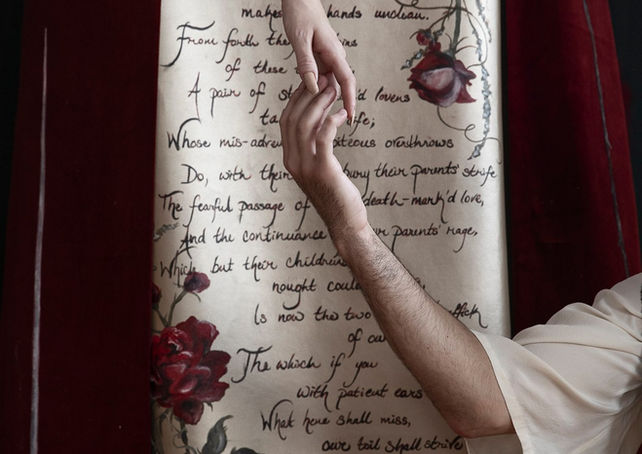 makes hands unclean.
From forth the
of these
A pair of d lovers
life;
Whose mis-adven piteous overthrows
Do, with their bury their parents' strife
The fearful passage of death-mark'd love,
And the continuance parents' rage,
Which but their children
nought could
Is now the two
of our
The which if you
with patient ears
What here shall miss,
our toil shall strive